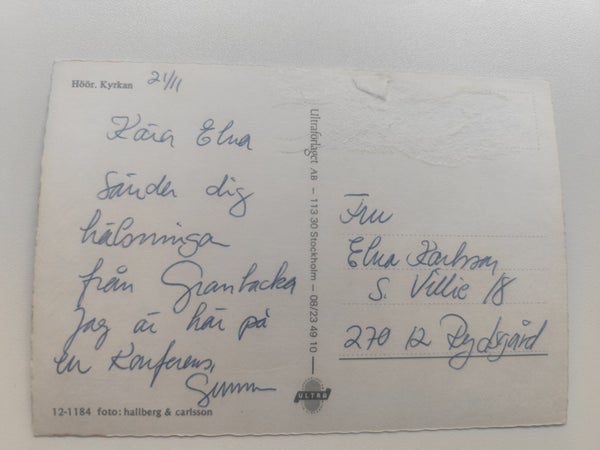 Höör. Kyrkan
21/11
Kära Elna
Sänder dig
hälsningar
från Granbacka
Jag är här på
en Konferens,
Gunnar
12-1184 foto: hallberg & carlsson
Ultraförlaget AB – 113 30 Stockholm – 08/23 49 10
ULTRA
Fru
Elna Karlsson
S. Villie 18
270 12 Rydsgård